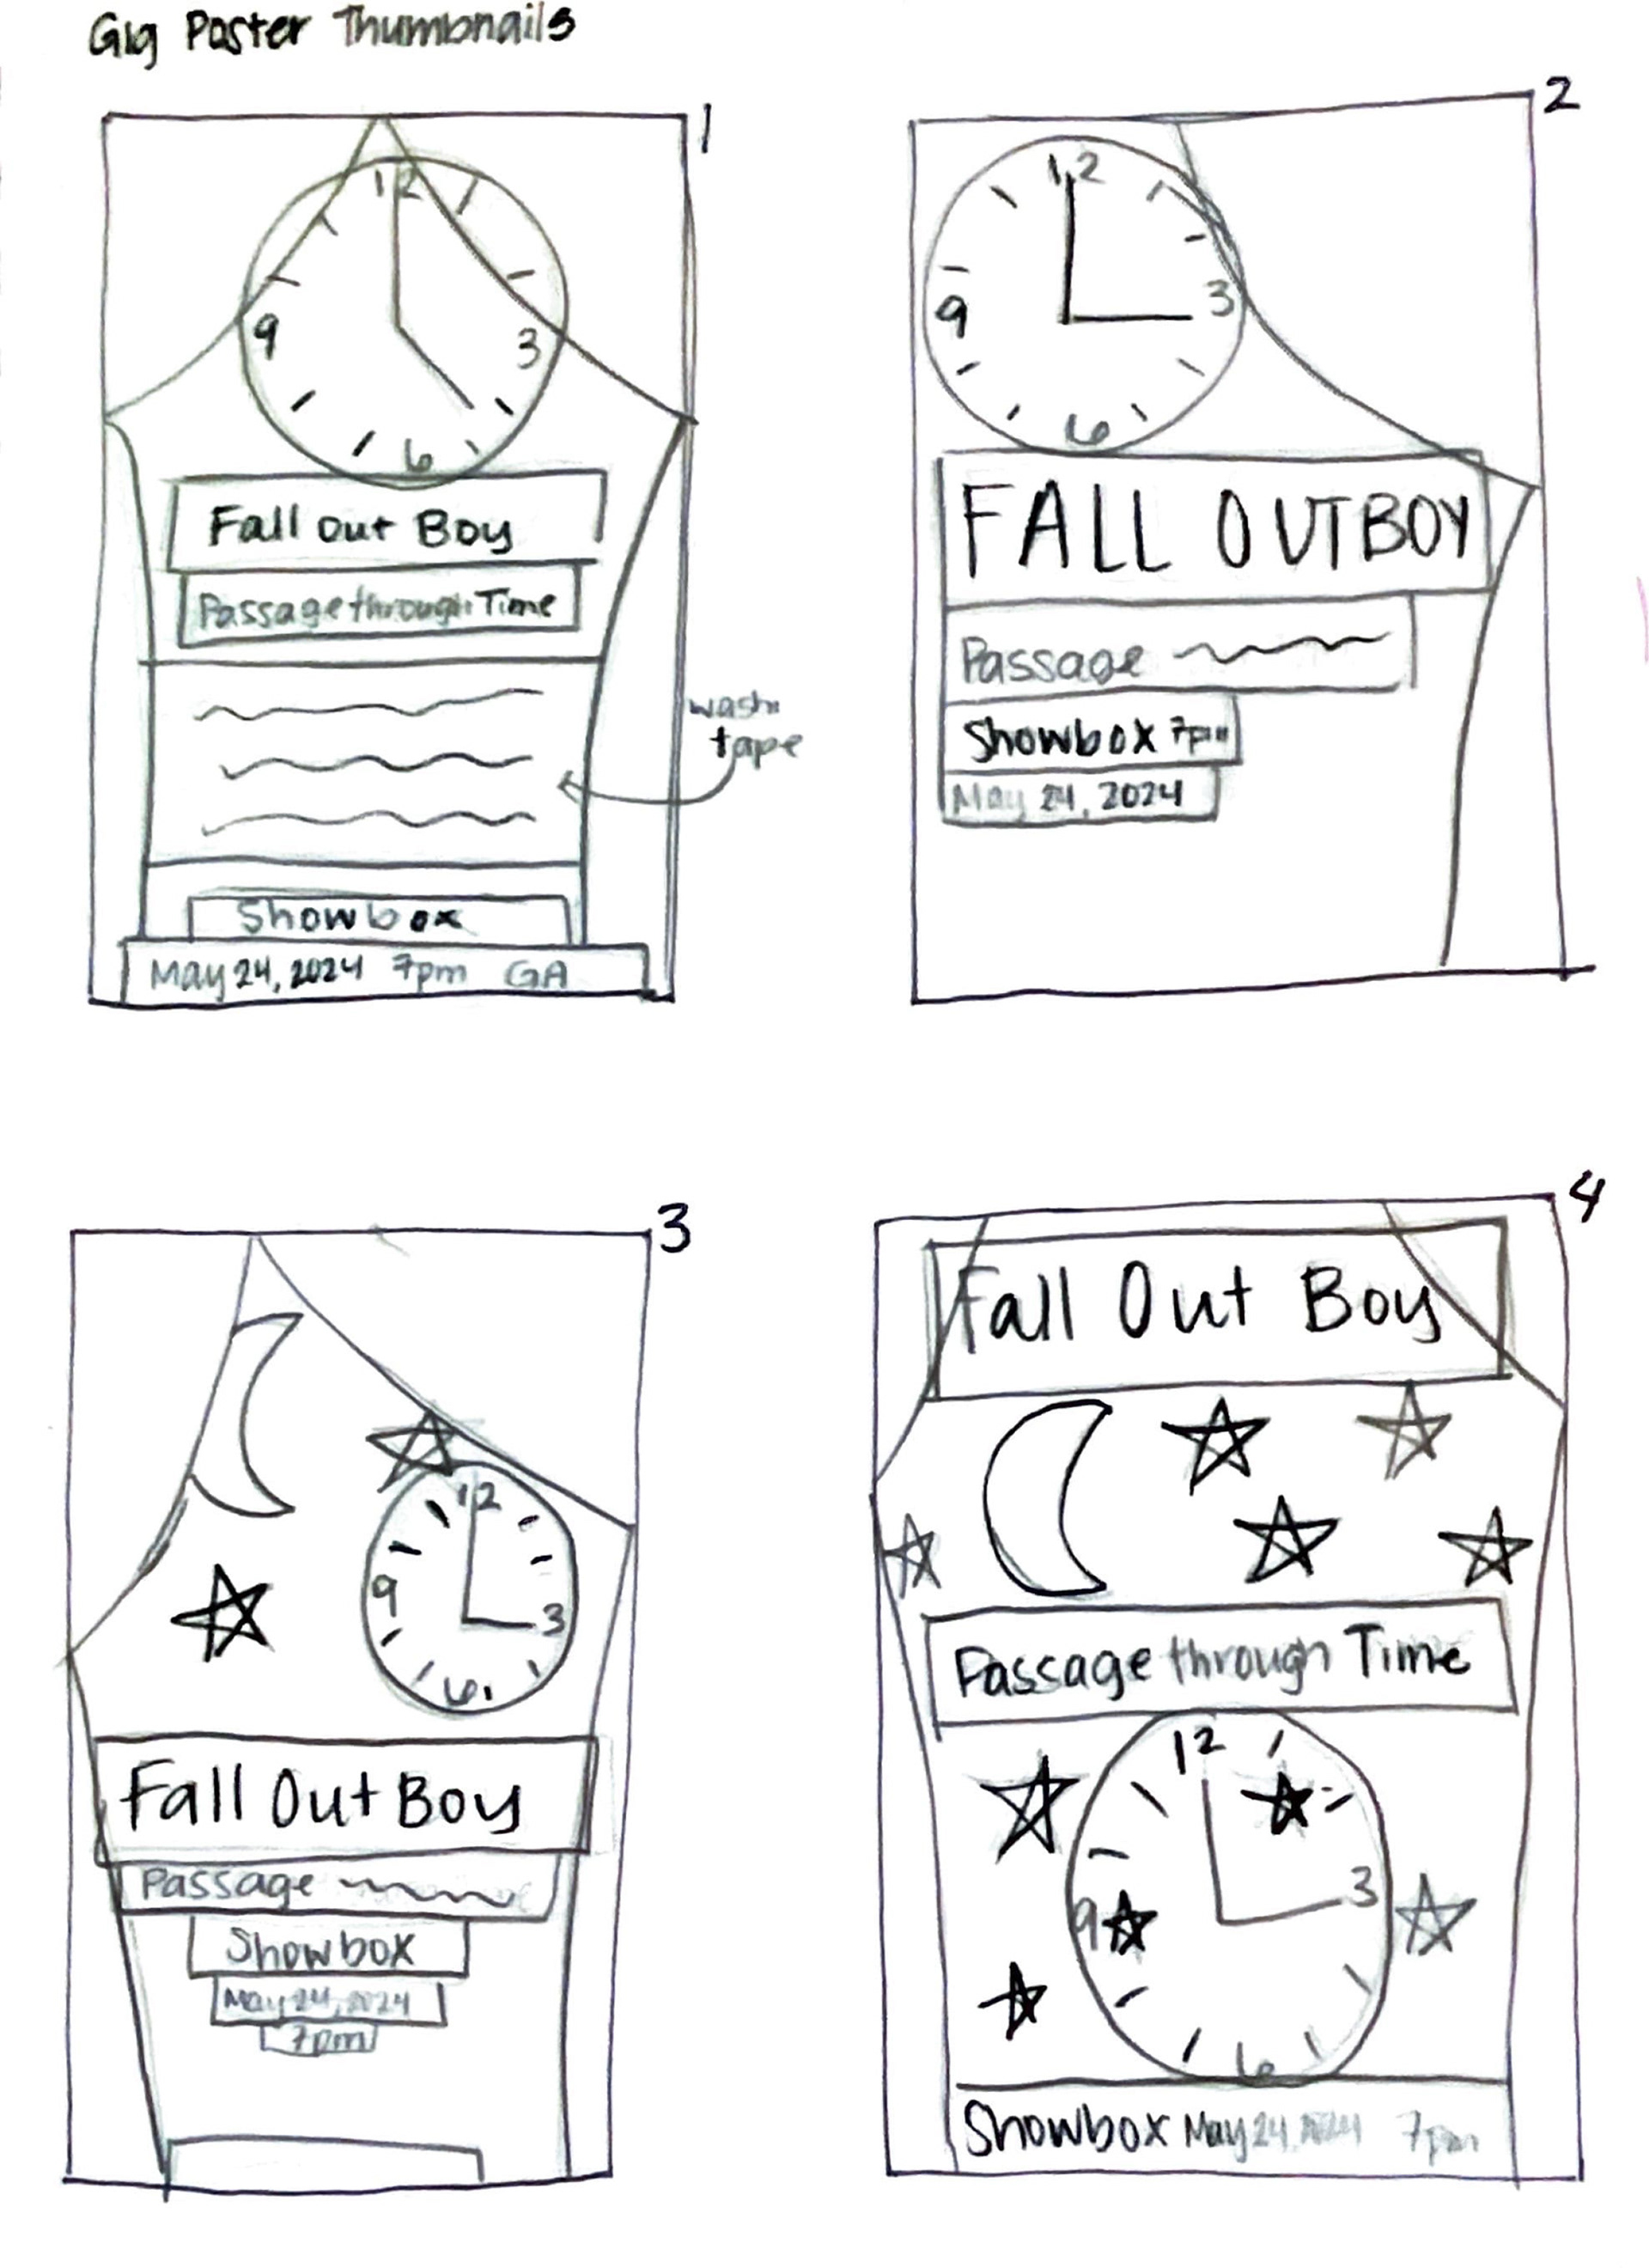 Gig Poster Thumbnails
1
12
9
3
6
Fall Out Boy
Passage through Time
washi
tape
Showbox
May 24, 2024 7pm GA
2
12
9
3
6
FALL OUTBOY
Passage
Showbox 7pm
May 24, 2024
3
12
9
3
6
Fall Out Boy
Passage
Showbox
May 24, 2024
7pm
4
Fall Out Boy
Passage through Time
12
9
3
6
Showbox May 24, 2024 7pm